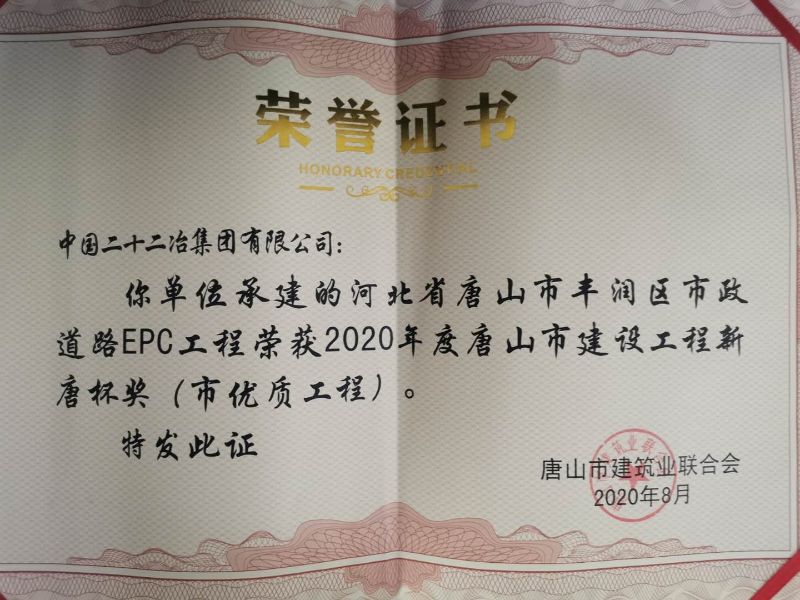 荣誉证书
HONORARY CREDENTIAL
中国二十二冶集团有限公司：
你单位承建的河北省唐山市丰润区市政
道路EPC工程荣获2020年度唐山市建设工程新
唐杯奖（市优质工程）。
特发此证
唐山市建筑业联合会
2020年8月